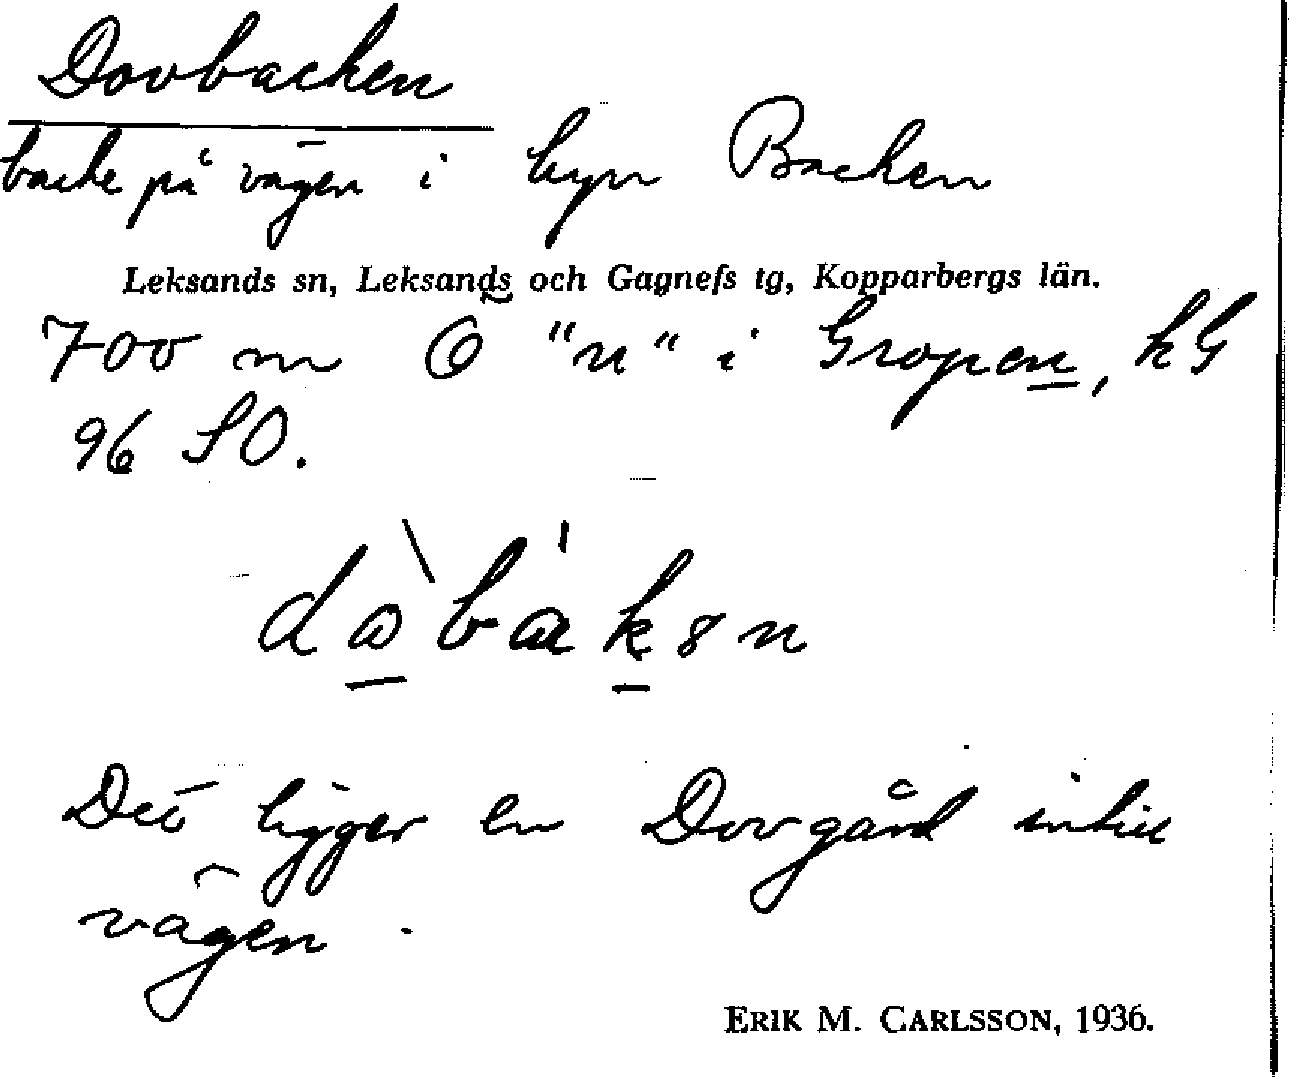 Dovbacken
backe på vägen i byn Backen
Leksands sn, Leksands och Gagnefs tg, Kopparbergs län.
700 m O "n" i Gropen, kG
96 SO.
Det ligger en Dovgård intill
vägen.
ERIK M. CARLSSON, 1936.